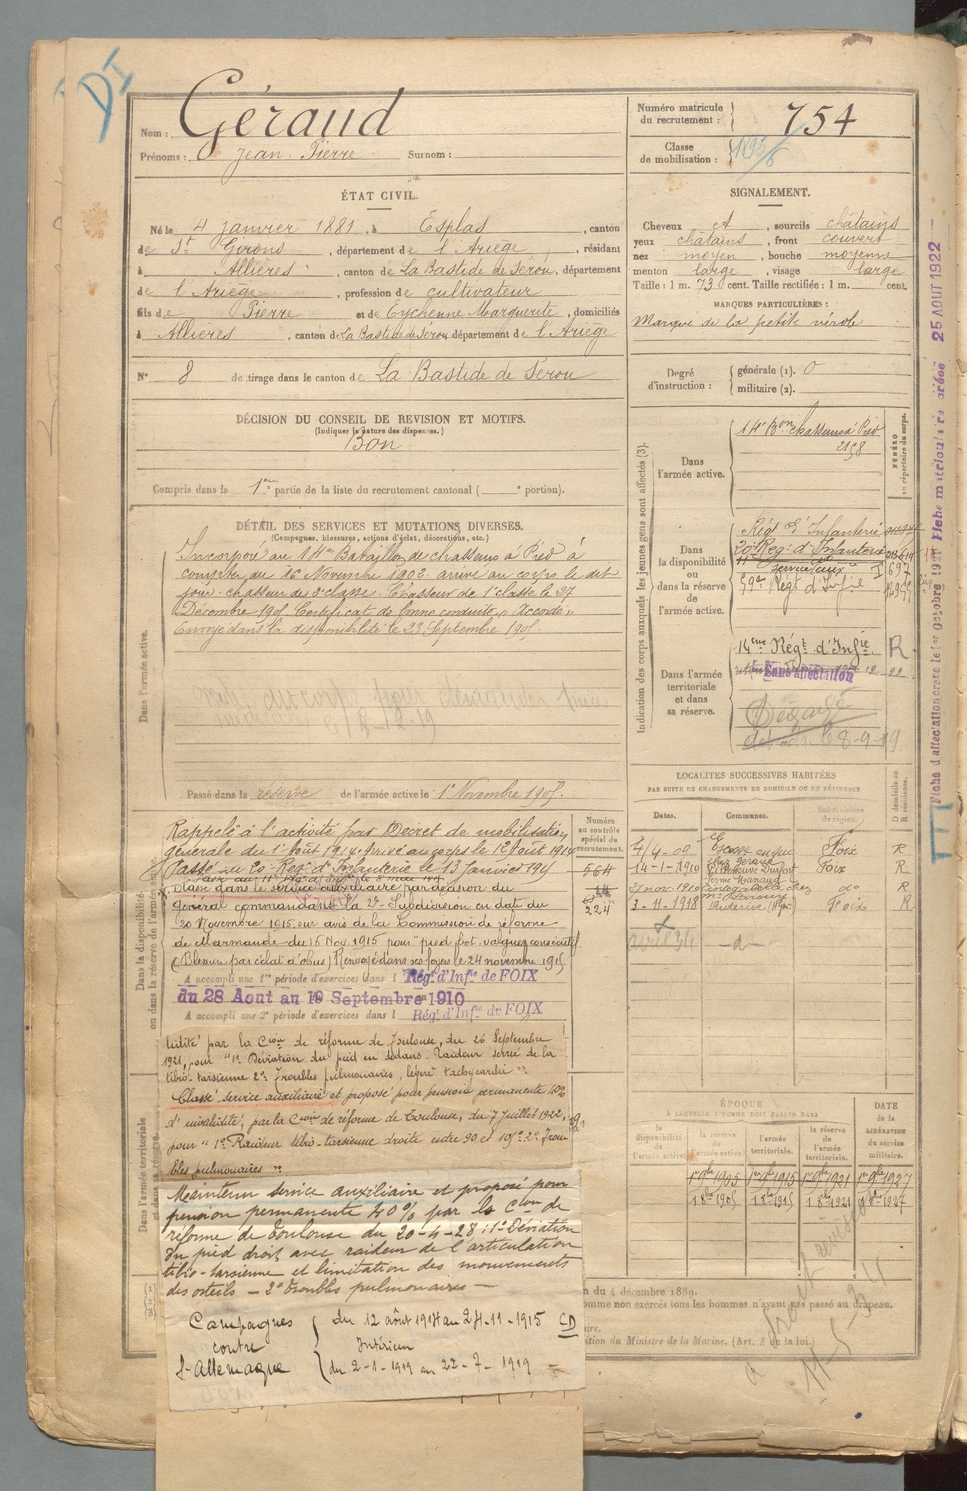 DI
Nom : Géraud
Prénoms : Jean Pierre Surnom :
Numéro matricule du recrutement : 754
Classe de mobilisation :
ÉTAT CIVIL.
Né le 4 janvier 1881, à Esplas, canton
de St Girons, département de l'Ariège, résidant
à Allières, canton de La Bastide de Sérou, département
de l'Ariège, profession de cultivateur
fils de Pierre et de Eychenne Marguerite, domiciliés
à Allières, canton de La Bastide de Sérou département de l'Ariège
N° 8 de tirage dans le canton de La Bastide de Sérou
SIGNALEMENT.
Cheveux et, sourcils châtains
yeux châtains, front couvert
nez moyen, bouche moyenne
menton large, visage large
Taille : 1 m. 73 cent. Taille rectifiée : 1 m. cent.
MARQUES PARTICULIÈRES :
Marqué de la petite vérole
Degré d'instruction : générale (1). 0
militaire (2).
DÉCISION DU CONSEIL DE REVISION ET MOTIFS.
(Indiquer la nature des dispenses.)
Bon
Compris dans la 1ère partie de la liste du recrutement cantonal ( e portion).
DÉTAIL DES SERVICES ET MUTATIONS DIVERSES.
(Campagnes, blessures, actions d'éclat, décorations, etc.)
Dans l'armée active.
Incorporé au 14me Bataillon de chasseurs à Pied à
compter du 16 Novembre 1902 arrivé au corps le dit
jour. chasseur de 2e classe. Chasseur de 1e classe le 27
Décembre 190 Certificat de bonne conduite "Accordé"
Envoyé dans la disponibilité le 23 Septembre 190
Passé dans la réserve de l'armée active le 1er Novembre 190
Indication des corps auxquels les jeunes gens sont affectés (3).
NUMÉRO au répertoire du corps.
Dans l'armée active.
14e Bon chasseurs à Pied
2158
Dans la disponibilité ou dans la réserve de l'armée active.
Régt d'Infanterie
20e Régt d'Infanterie
697
59e Régt d'Infie
Dans l'armée territoriale et dans sa réserve.
14eme Régt d'Infie. R
Sans affectation
Dégagé
8-9-19
Fiche d'affectation créée le 1er Octobre 1921 Fiche matriculaire créée 25 AOUT 1922
LOCALITÉS SUCCESSIVES HABITÉES
PAR SUITE DE CHANGEMENTS DE DOMICILE OU DE RÉSIDENCE
Dates. Communes. Subdivisions de région. D domicile ou R résidence.
4-09 Foix R
14-1-1910 Foix R
nov 1910 do R
3-11-1918 Foix R
-d-
Dans la disponibilité ou dans la réserve de l'armée active.
Numéro au contrôle spécial du recrutement.
Rappelé à l'activité par Décret de mobilisation
générale du 1er Août 1914. Arrivé au corps le 12 Août 1914
Passé au 20e Régt d'Infanterie le 13 janvier 1915
564
Classé dans le service auxiliaire par décision du
général commandant la 2e Subdivision en date du
224
20 Novembre 1915 sur avis de la Commission de réforme
de Marmande du 16 Nov. 1915 pour "pied bot valgus consécutif
(Blessure par éclat d'obus) Renvoyé dans ses foyers le 24 novembre 1915
A accompli une 1re période d'exercices dans l Régt d'Infie de FOIX
du 28 Aout au 19 Septembre 1910
A accompli une 2e période d'exercices dans l Régt d'Infie de FOIX
lidité par la Cion de réforme de Toulouse, du 26 Septembre
1921, pour "1° Déviation du pied en dedans. Raideur serrée de la
tibio-tarsienne 2° Troubles pulmonaires, légère tachycardie".
Classé service auxiliaire et proposé pour pension permanente 40%
d'invalidité, par la Cion de réforme de Toulouse, du 7 juillet 1922,
pour "1° Raideur tibio-tarsienne droite entre 90 et 105° 2° Trou-
bles pulmonaires".
Dans l'armée territoriale et dans sa réserve.
Maintenu service auxiliaire et proposé pour
pension permanente 40% par la Cion de
réforme de Toulouse du 20-4-28 : 1° Déviation
du pied droit avec raideur de l'articulation
tibio-tarsienne et limitation des mouvements
des orteils — 2° troubles pulmonaires —
Campagnes contre l'Allemagne
du 12 août 1914 au 24-11-1915 CD
Intérieur
du 2-1-1919 au 22-7-1919
ÉPOQUE
À LAQUELLE L'HOMME DOIT PASSER DANS
la disponibilité de l'armée active. la réserve de l'armée active. l'armée territoriale. la réserve de l'armée territoriale.
DATE de la LIBÉRATION du service militaire.
1er 9bre 1905 1er 9bre 1915 1er 9bre 1921 1er 9bre 1927
1 8bre 1905 1 8bre 1915 1 8bre 1921 1 8bre 1927
n du 4 décembre 1889.
omme non exercés tous les hommes n'ayant pas passé au drapeau.
ition du Ministre de la Marine. (Art. de la loi.)